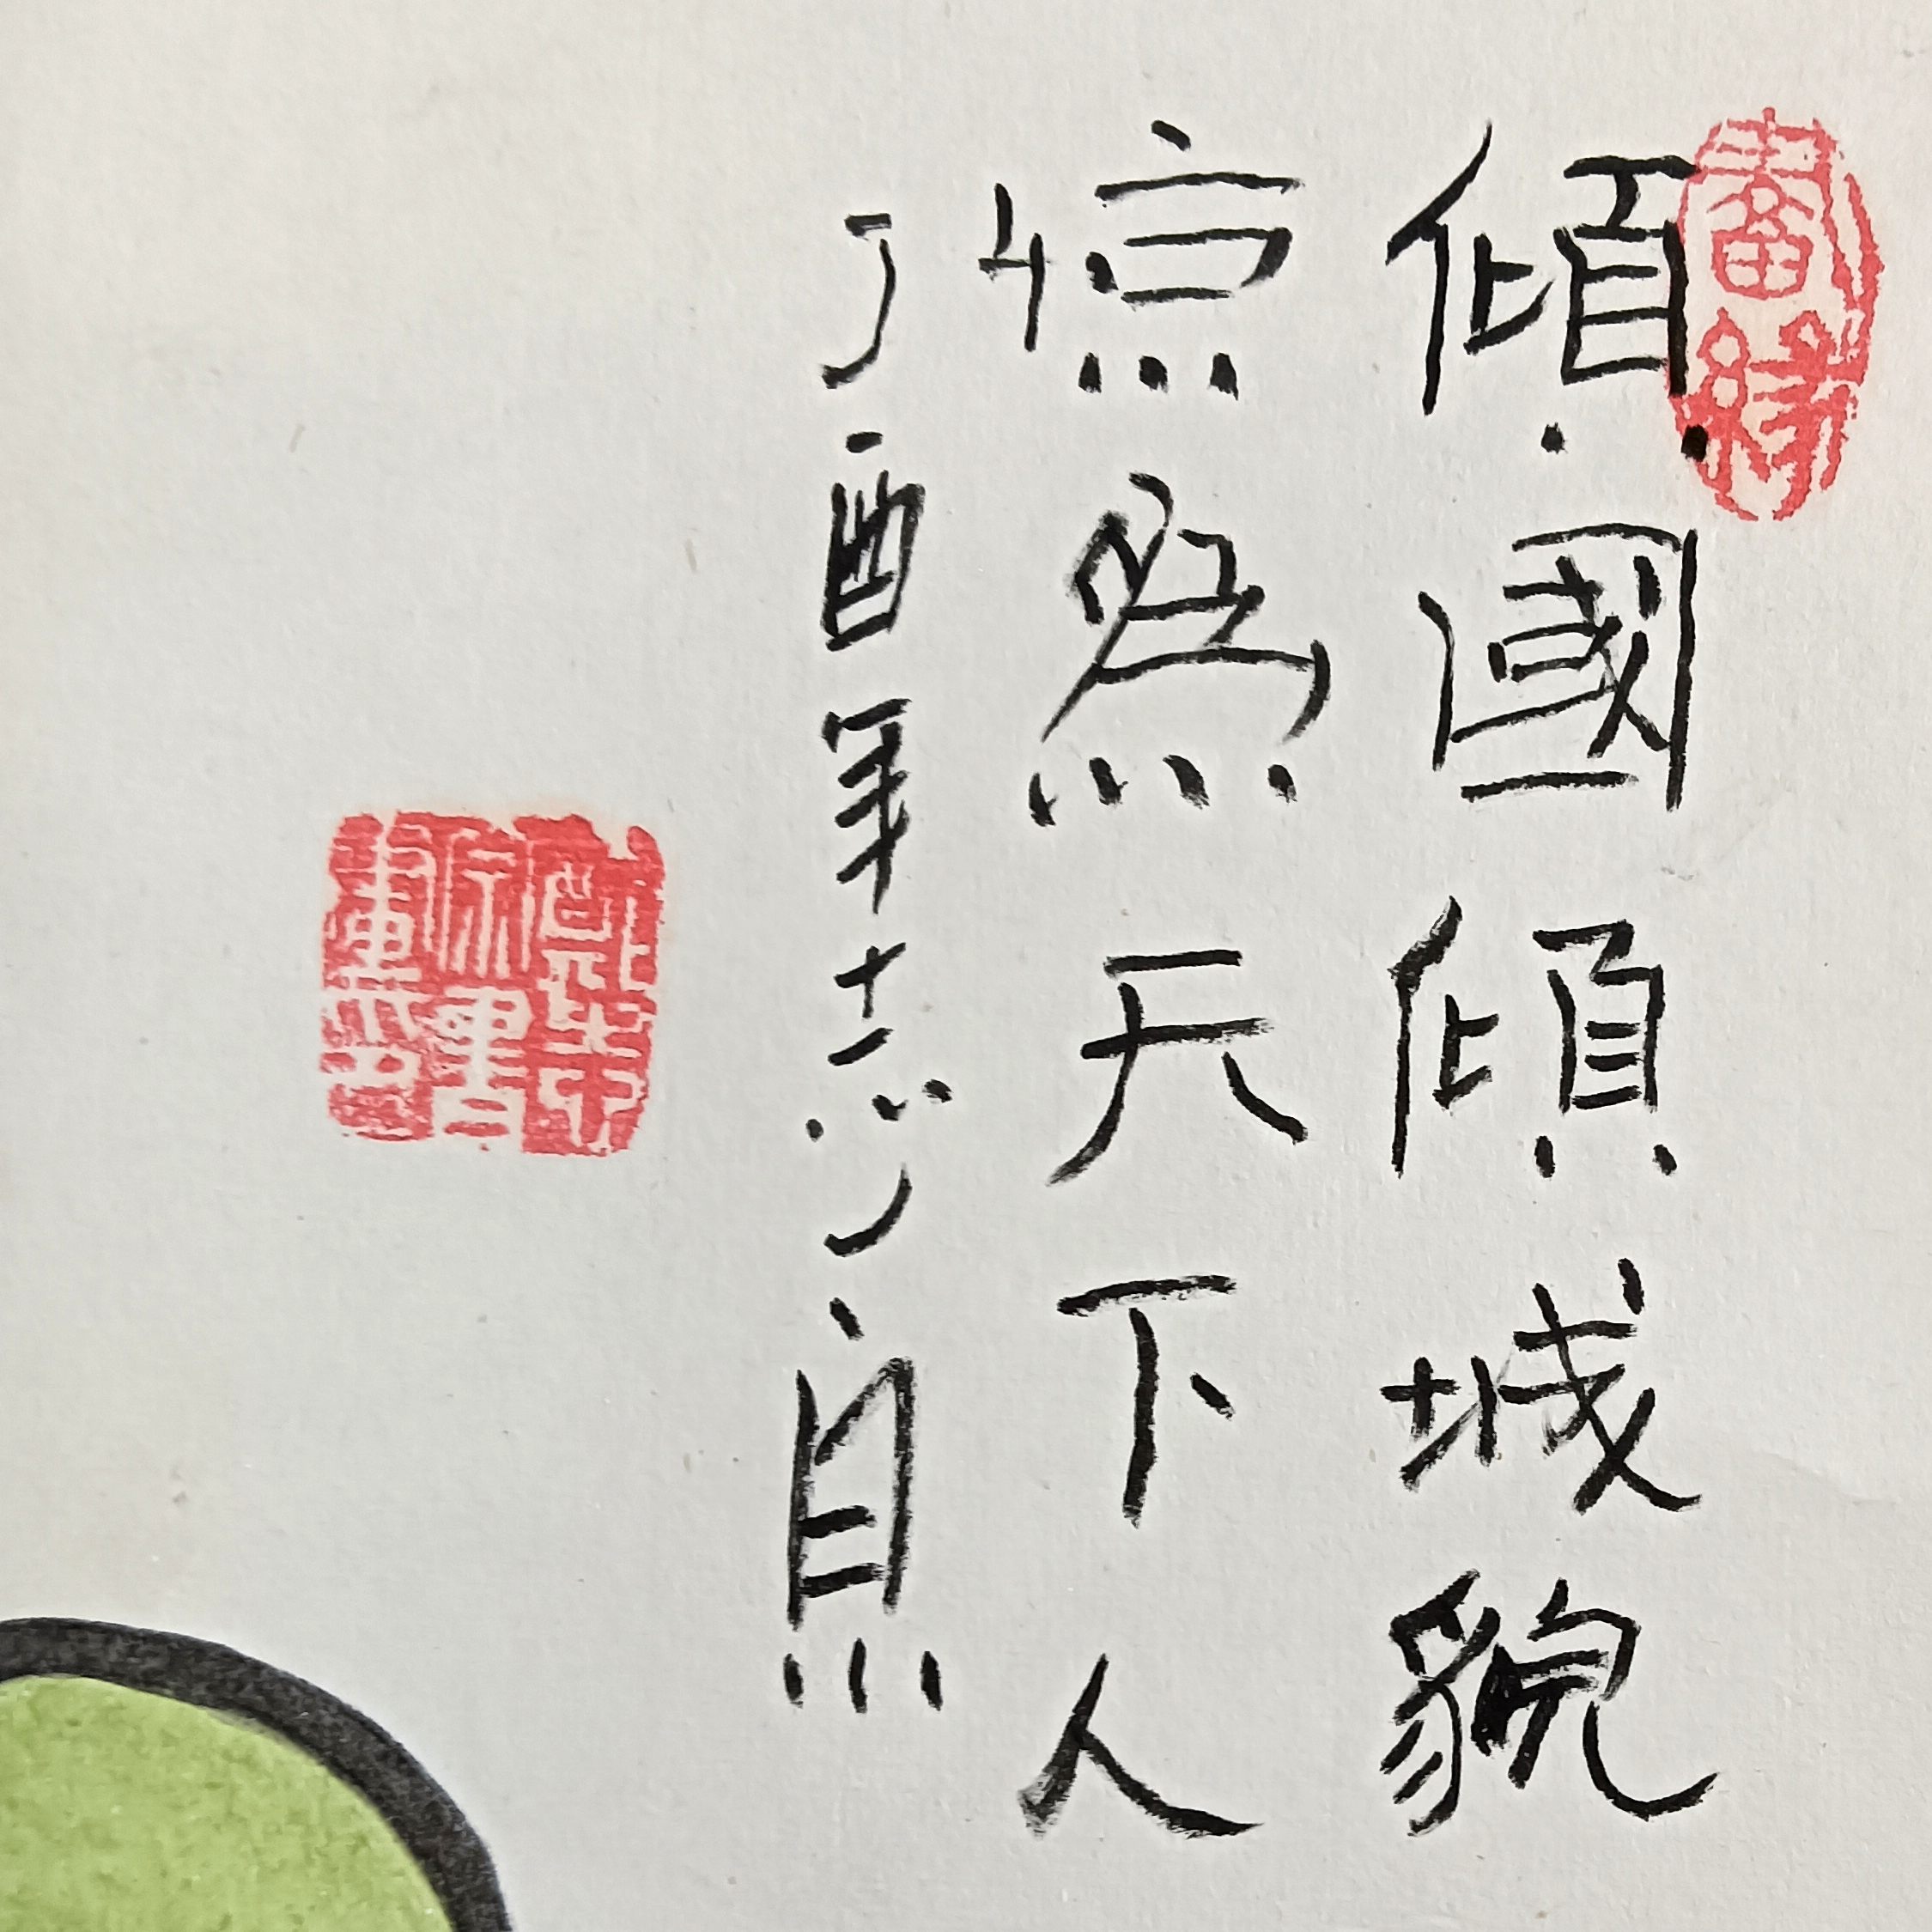 傾國傾城貌
惊為天下人
丁酉年
畫緣